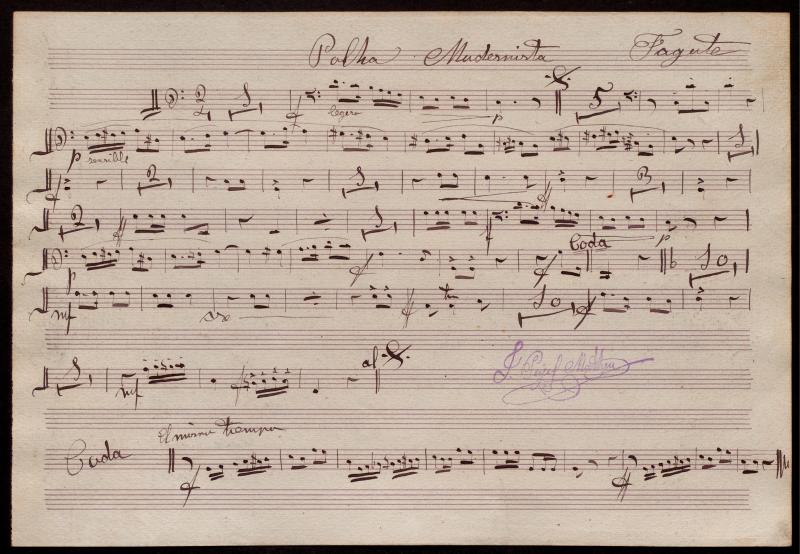 Polka Modernista Fagote
2 4 1 ff legero p 5
p sensible 1
f 2 1 3
2 ff 1 f p
p f f Coda 10
mf ff 10 ff
1 mf ff al
Coda El mismo tiempo
f ff